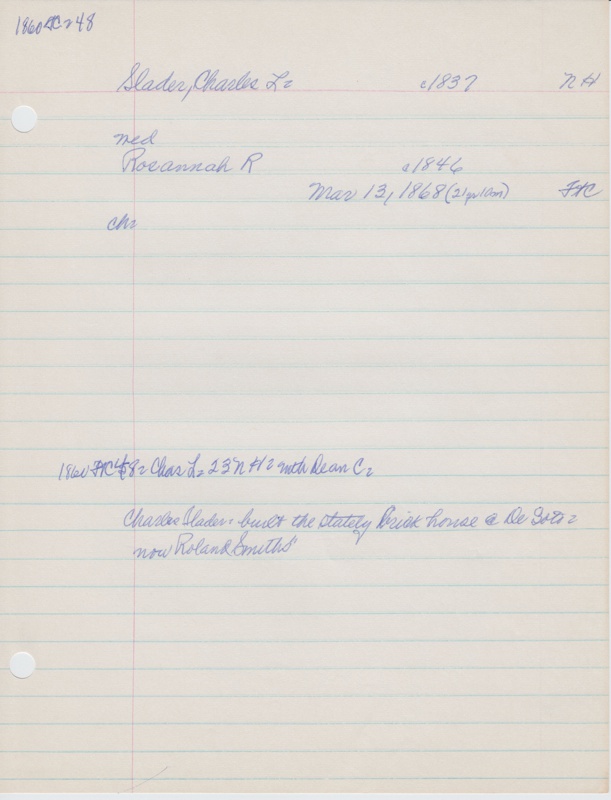 1860 HC 48
Slader, Charles L. c1837 NH
md
Rosannah R c1846
Mar 13, 1868 (21yr10m) FHC
ch:
1860 HC 48. Chas L. 23 NH. with Dean C.
Charles Slader. built the stately Brick house @ De Soto.
now Roland Smiths"